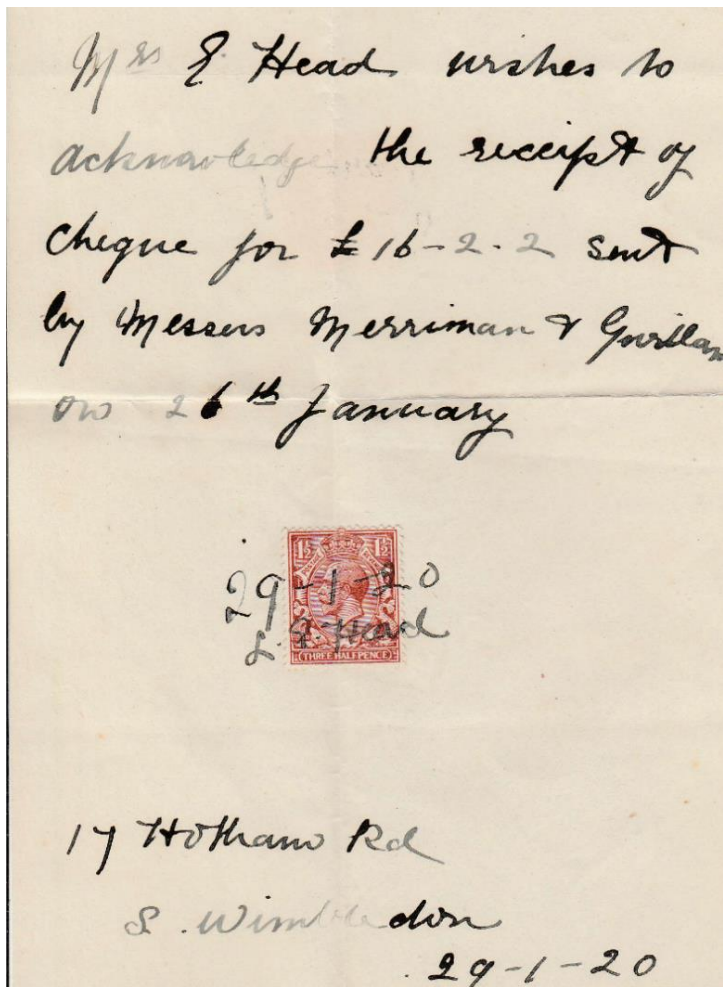 Mrs E. Head wishes to
acknowledge the receipt of
cheque for £16-2-2 sent
by Messers Merriman &
on 26th January
1½ 1½
29-1-20
L. E. Head
THREE HALFPENCE
17 Hotham Rd
S. Wimbledon
29-1-20